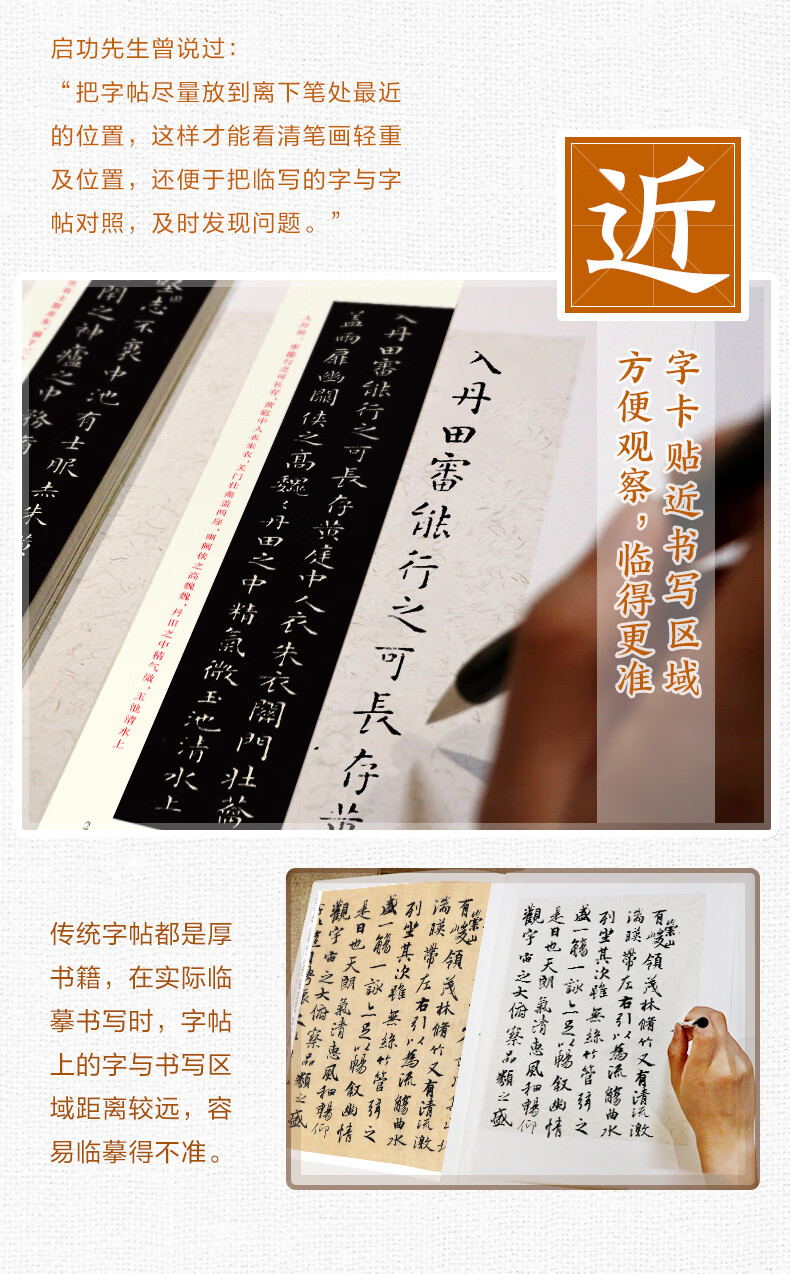 启功先生曾说过：
“把字帖尽量放到离下笔处最近
的位置，这样才能看清笔画轻重
及位置，还便于把临写的字与字
帖对照，及时发现问题。”
近
字卡贴近书写区域
方便观察，临得更准
志不衰中池有士服
闱之神廬之中務
入丹田審能行之可長存黄庭中人衣朱衣關門壮籥
蓋兩扉幽闕侠之高巍〻丹田之中精氣微玉池清水上
入丹田審能行之可長存
传统字帖都是厚
书籍，在实际临
摹书写时，字帖
上的字与书写区
域距离较远，容
易临摹得不准。
有崇山
峻領茂林脩竹又有清流激
湍暎帶左右引以為流觴曲水
列坐其次雖無絲竹管弦之
盛一觴一詠亦足以暢叙幽情
是日也天朗氣清惠風和暢仰
觀宇宙之大俯察品類之盛
有崇山
峻領茂林脩竹又有清流激
湍暎帶左右引以為流觴曲水
列坐其次雖無絲竹管弦之
盛一觴一詠亦足以暢叙幽情
是日也天朗氣清惠風和暢仰
觀宇宙之大俯察品類之盛